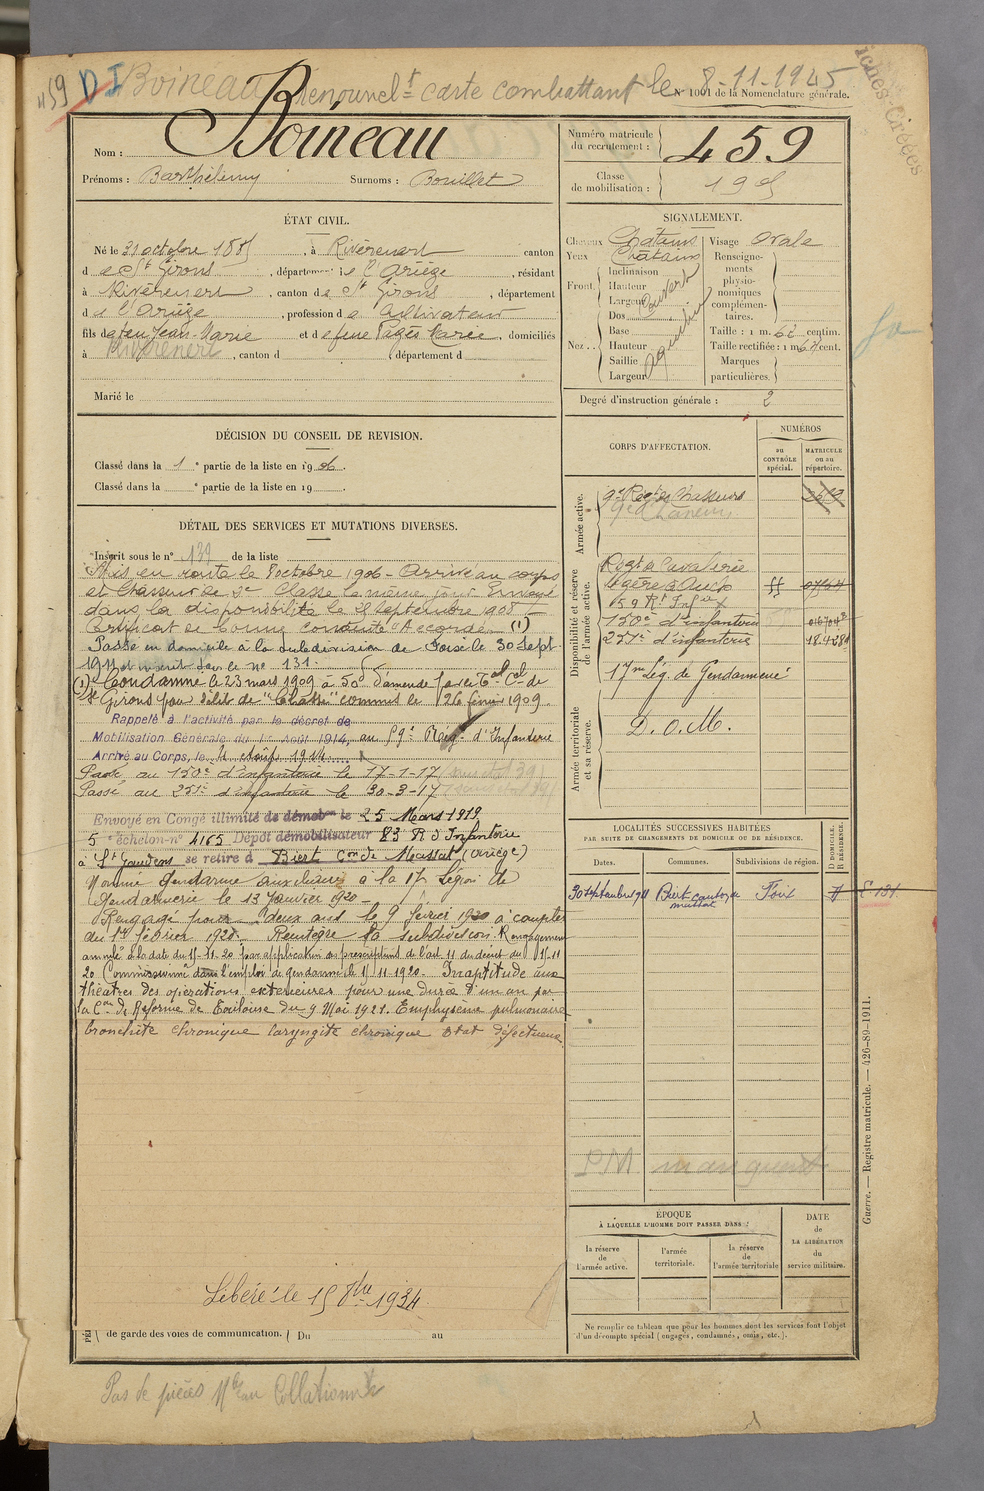 459 D I Boineau renouvelt carte combattant le 8-11-1945
N° 1001 de la Nomenclature générale.
Nom : Boineau
Prénoms : Barthélemy Surnoms : Bouillet
Numéro matricule du recrutement : 459
Classe de mobilisation : 1905
ÉTAT CIVIL.
Né le 31 octobre 1885, à Rivèrenert canton
de St Girons, département de l'Ariège, résidant
à Rivèrenert, canton de St Girons, département
de l'Ariège, profession de Cultivateur
fils de feu Jean-Marie et de feue Pagès Marie, domiciliés
à Rivèrenert, canton d département d
Marié le
SIGNALEMENT.
Cheveux Chatains Visage Ovale
Yeux Châtains Renseignements physionomiques complémentaires.
Front Inclinaison
Hauteur
Largeur
Découvert
Nez Dos
Base
Hauteur
Saillie
Largeur
Taille : 1 m. 62 centim.
Taille rectifiée : 1 m. 67 cent.
Marques particulières.
Degré d'instruction générale : 2
DÉCISION DU CONSEIL DE REVISION.
Classé dans la 1e partie de la liste en 1906.
Classé dans la e partie de la liste en 19
DÉTAIL DES SERVICES ET MUTATIONS DIVERSES.
Inscrit sous le n° 139 de la liste
Mis en route le 8 octobre 1906 - Arrivé au corps
et Chasseur de 2e Classe le même jour. Envoyé
dans la disponibilité le 28 septembre 1908 -
Certificat de bonne conduite "Accordé" (1)
Passé en domicile à la subdivision de Foix le 30 Sept.
1911 et inscrit sous le n° 131.
(1) Condamné le 23 mars 1909 à 50f d'amende par le Tal Cel de
St Girons pour délit de "Chasse" commis le 26 février 1909.
Rappelé à l'activité par le décret de
Mobilisation Générale du 1er Août 1914, au 59e Rég. d'Infanterie
Arrivé au Corps, le 4 août 1914
Passé au 150e d'infanterie le 17-1-17
Passé au 251e d'infanterie le 30-3-17
Envoyé en Congé illimité de démobon le 25 Mars 1919
5e échelon n° 4165 Dépôt démobilisateur 83 R. d'Infanterie
à St Gaudens se retire à Biert Con de Massat (Ariège)
Nommé Gendarme auxiliaire à la 17e Légion de
Gendarmerie le 13 Janvier 1920 -
Rengagé pour deux ans le 9 février 1920 à compter
du 1er février 1920. Réintègre sa subdivision. Rengagement
annulé à la date du 15-11-20 par application des prescriptions de l'art. 11 du décret du 15-11
20 Commissionné dans l'emploi de gendarme le 15-11-1920. Inaptitude aux
théâtres des opérations extérieures pour une durée d'un an par
la Con de Réforme de Toulouse du 9 Mai 1921. Emphysème pulmonaire
bronchite chronique laryngite chronique état défectueux
Libéré le 15 8bre 1934
de garde des voies de communication. Du au
CORPS D'AFFECTATION.
NUMÉROS
au CONTRÔLE spécial.
MATRICULE ou au répertoire.
Armée active.
9e Régt de Chasseurs
Disponibilité et réserve de l'armée active.
Regt de Cavalerie
légère à Auch
59 Rt Infie
150e d'infanterie
251e d'infanterie
17me Lég. de Gendarmerie
Armée territoriale et sa réserve.
D. O. M.
LOCALITÉS SUCCESSIVES HABITÉES
PAR SUITE DE CHANGEMENTS DE DOMICILE OU DE RÉSIDENCE.
Dates. Communes. Subdivisions de région. D DOMICILE. R RÉSIDENCE.
30 septembre 1911 Biert canton de Massat Foix D E 131
P M. manquent
ÉPOQUE
À LAQUELLE L'HOMME DOIT PASSER DANS :
la réserve de l'armée active.
l'armée territoriale.
la réserve de l'armée territoriale
DATE de LA LIBÉRATION du service militaire.
Ne remplir ce tableau que pour les hommes dont les services font l'objet
d'un décompte spécial (engagés, condamnés, omis, etc.).
Guerre. — Registre matricule. — 426-89-1911.
Pas de pièces